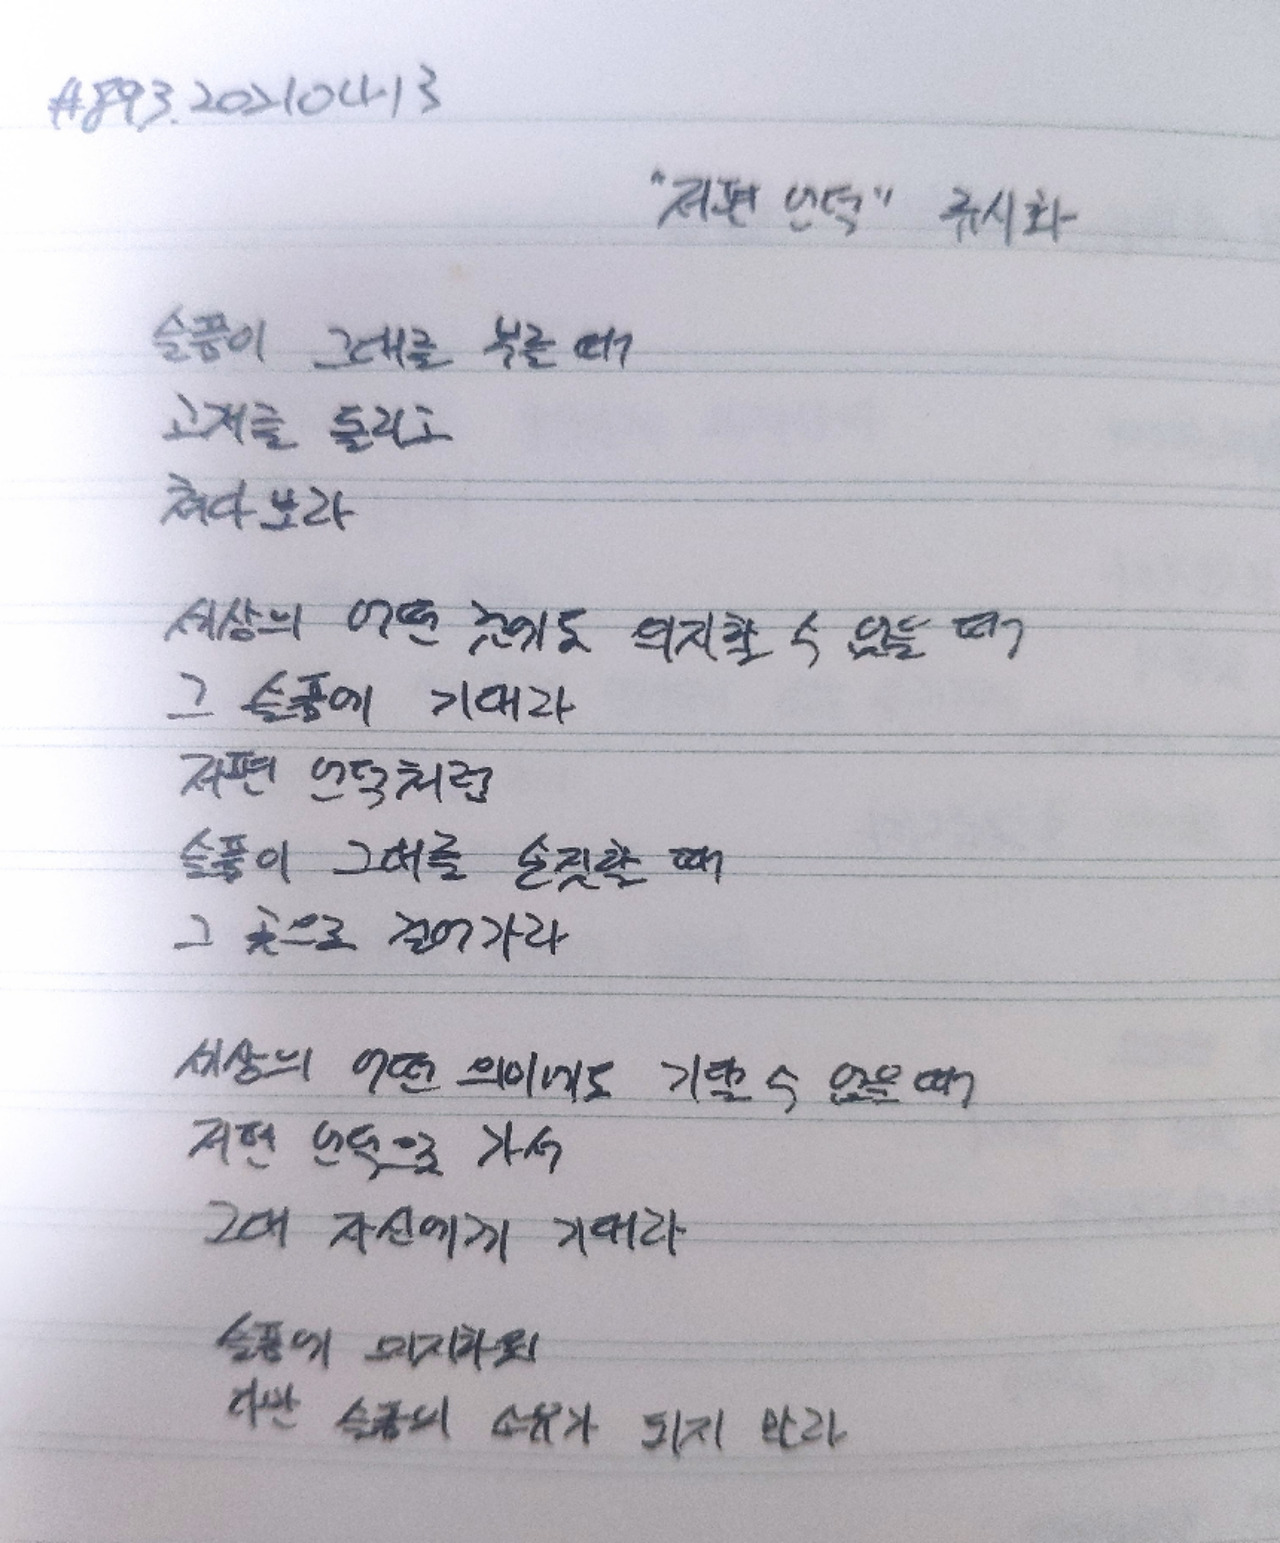 #893. 20210413
"저편 언덕" 류시화
슬픔이 그대를 부를 때
고개를 돌리고
쳐다보라
세상의 어떤 것에도 의지할 수 없을 때
그 슬픔에 기대라
저편 언덕처럼
슬픔이 그대를 손짓할 때
그 곳으로 걸어가라
세상의 어떤 의미에도 기댈 수 없을 때
저편 언덕으로 가서
그대 자신에게 기대라
슬픔에 의지하되
다만 슬픔의 소유가 되지 말라